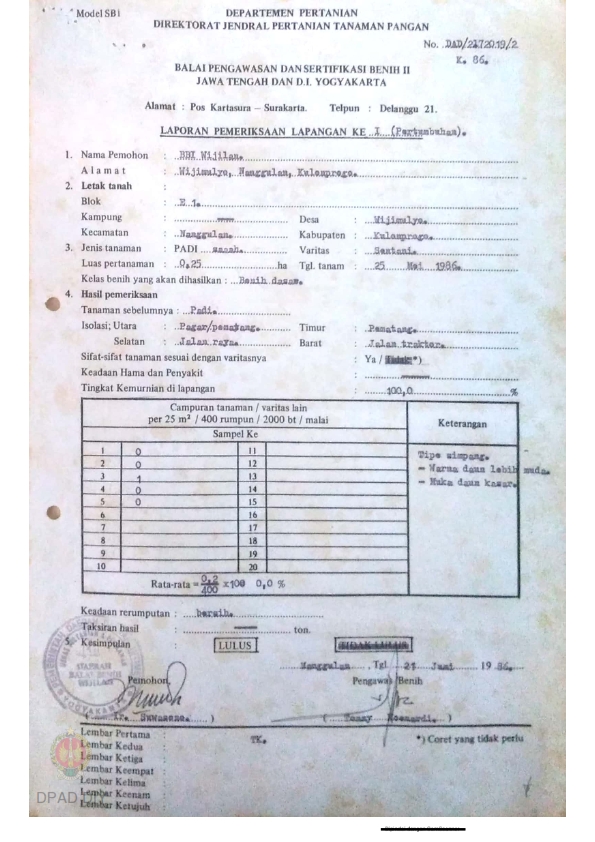 Model SB i
DEPARTEMEN PERTANIAN
DIREKTORAT JENDRAL PERTANIAN TANAMAN PANGAN
No. DAD/21720.19/2
K. 86.
BALAI PENGAWASAN DAN SERTIFIKASI BENIH II
JAWA TENGAH DAN D.I. YOGYAKARTA
Alamat : Pos Kartasura – Surakarta. Telpun : Delanggu 21.
LAPORAN PEMERIKSAAN LAPANGAN KE I (Pertumbuhan).
1. Nama Pemohon : BBI Wijilan.
Alamat : Wijimulyo, Nanggulan, Kulonprogo.
2. Letak tanah :
Blok : E 1.
Kampung : — Desa : Wijimulyo.
Kecamatan : Nanggulan. Kabupaten : Kulonprogo.
3. Jenis tanaman : PADI sawah. Varitas : Sentani.
Luas pertanaman : 0,25 ha Tgl. tanam : 25 Mei 1986.
Kelas benih yang akan dihasilkan : Benih dasar.
4. Hasil pemeriksaan
Tanaman sebelumnya : Padi.
Isolasi; Utara : Pagar/pematang. Timur : Pematang.
Selatan : Jalan raya. Barat : Jalan traktor.
Sifat-sifat tanaman sesuai dengan varitasnya : Ya / Tidak*)
Keadaan Hama dan Penyakit : —
Tingkat Kemurnian di lapangan : 100,0 %
Campuran tanaman / varitas lain
per 25 m² / 400 rumpun / 2000 bt / malai
Keterangan
Sampel Ke
1 0 11
2 0 12
3 1 13
4 0 14
5 0 15
6 16
7 17
8 18
9 19
10 20
Tipe simpang.
– Warna daun lebih muda.
– Muka daun kasar.
Rata-rata = 0,2/400 x100 0,0 %
Keadaan rerumputan : bersih.
Taksiran hasil : — ton.
5. Kesimpulan : LULUS TIDAK LULUS
Nanggulan, Tgl 21 Juni 1986.
Pemohon, Pengawas Benih
( Ir. Suwarno. ) ( Tonny Koenardi. )
Lembar Pertama : TK. *) Coret yang tidak perlu
Lembar Kedua :
Lembar Ketiga :
Lembar Keempat :
Lembar Kelima :
Lembar Keenam :
Lembar Ketujuh :
DPAD DIY